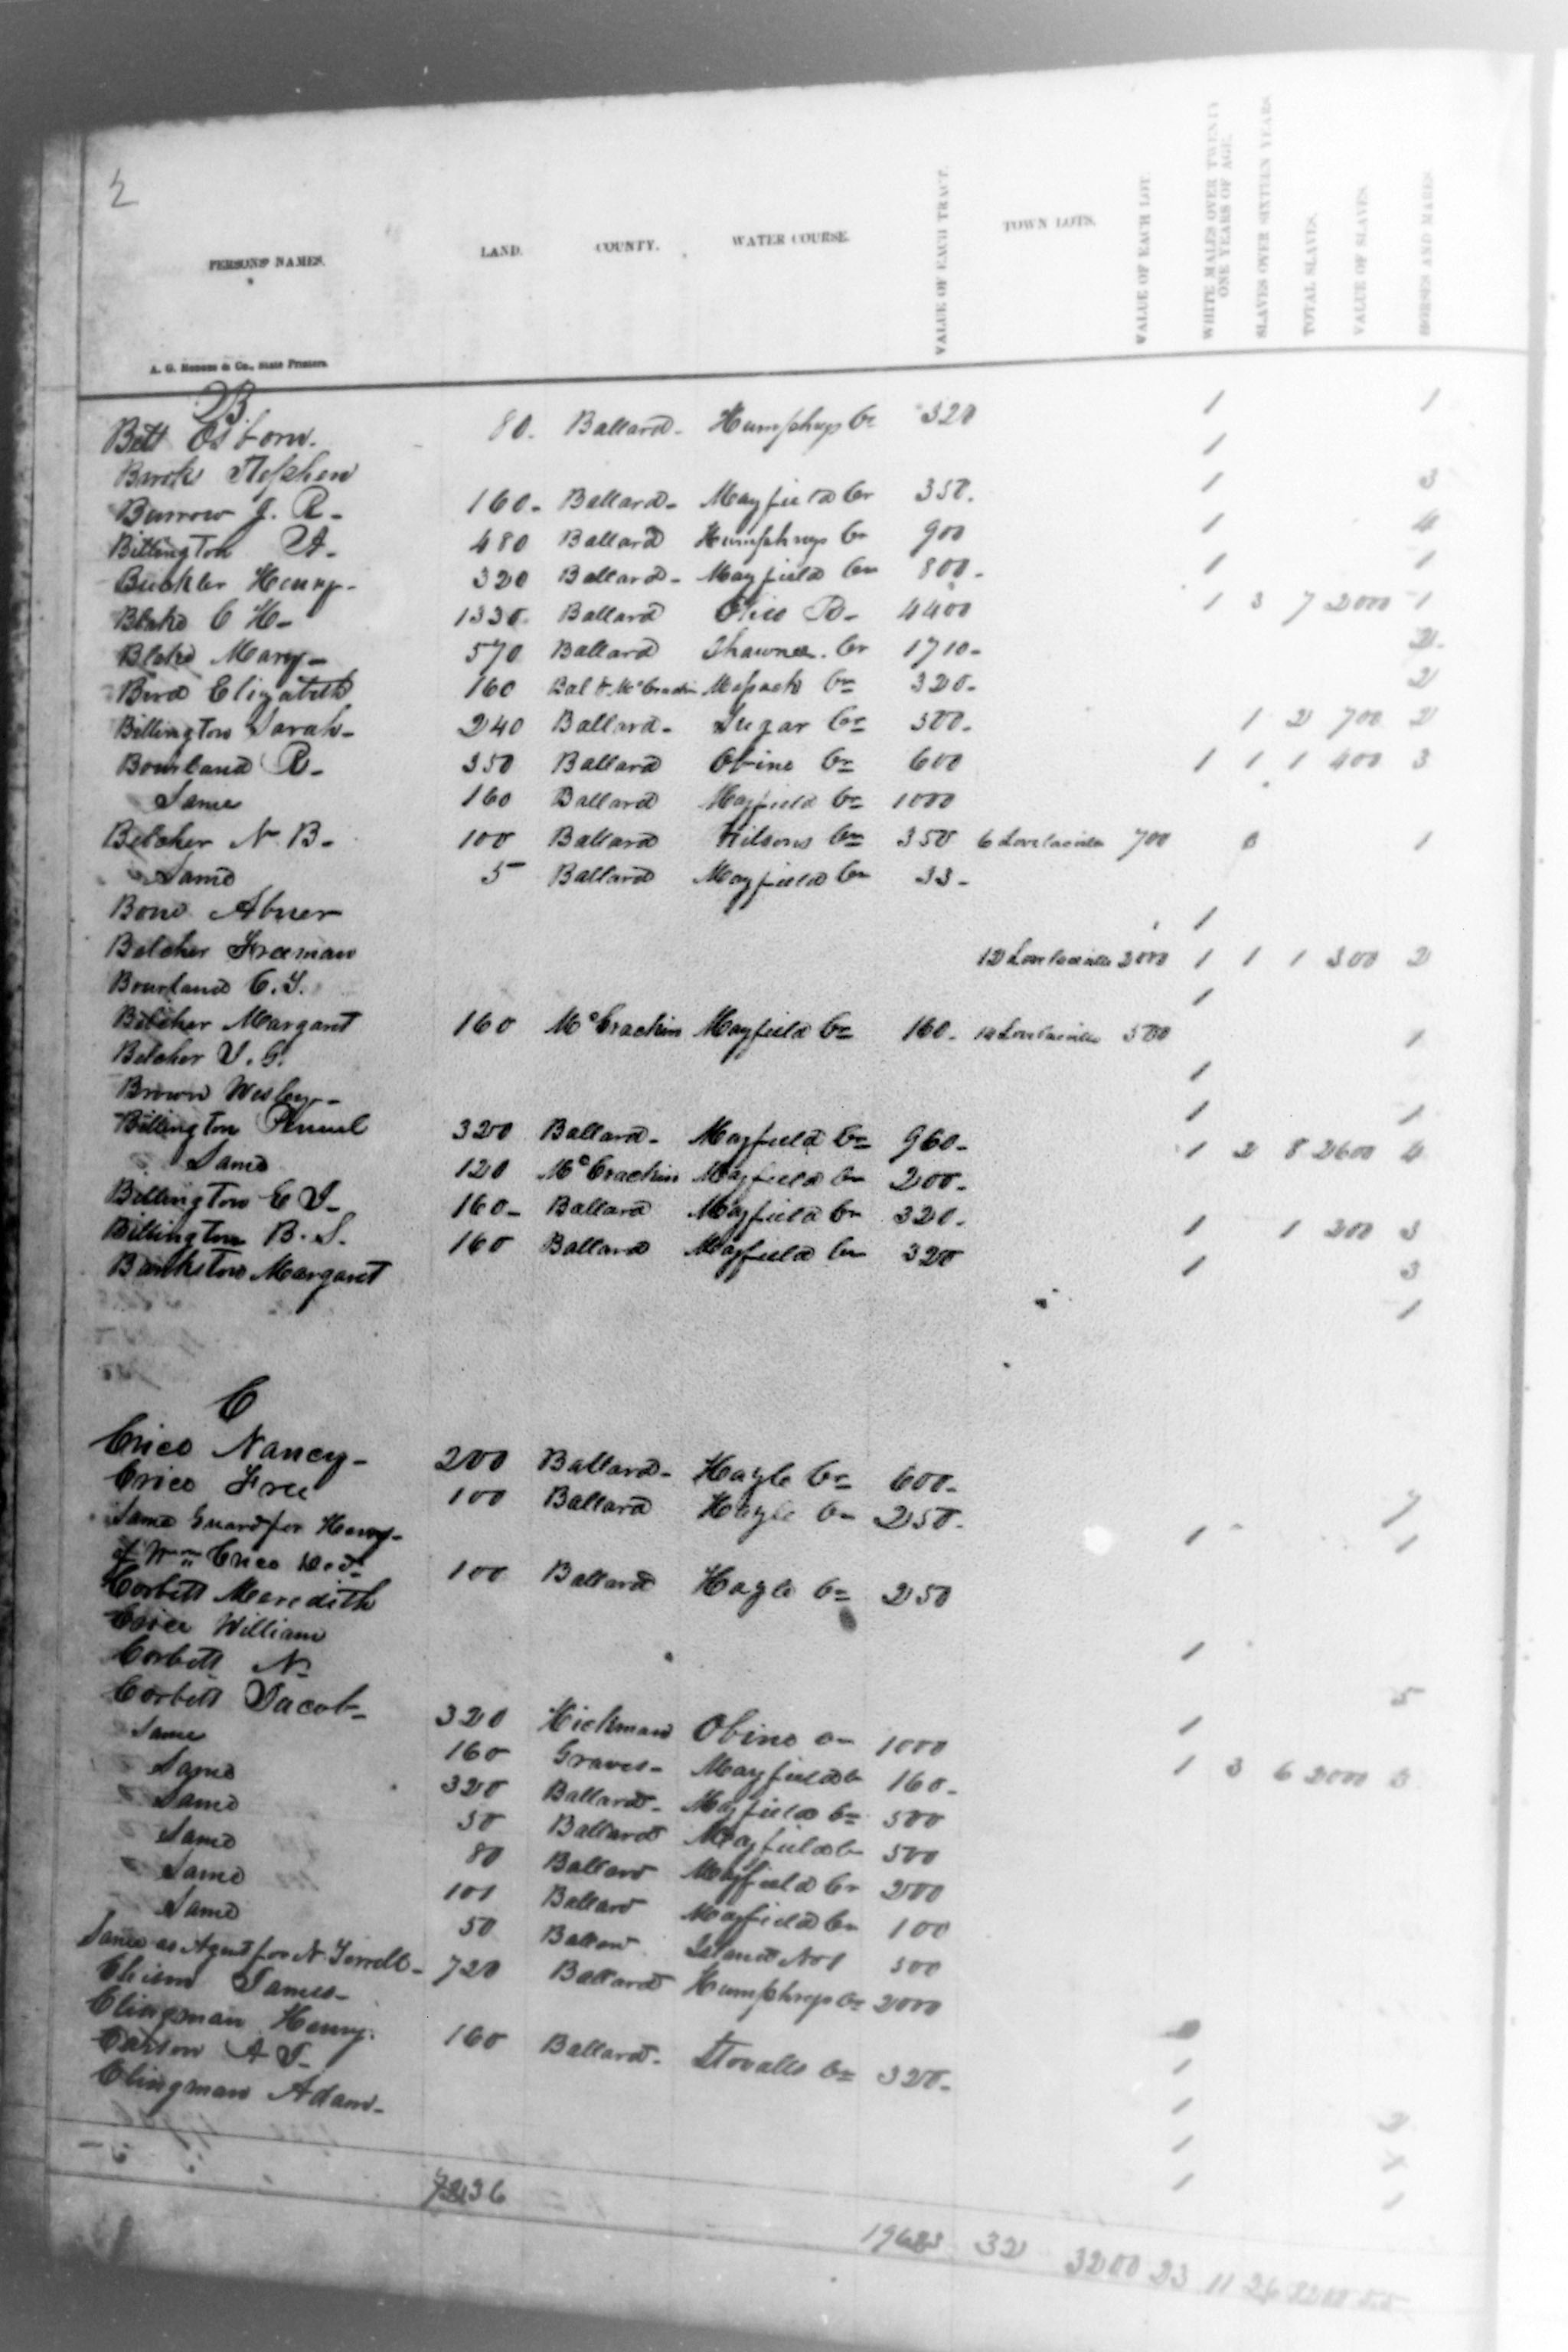 2
PERSONS' NAMES. LAND. COUNTY. WATER COURSE. VALUE OF EACH TRACT. TOWN LOTS. VALUE OF EACH LOT. WHITE MALES OVER TWENTY ONE YEARS OF AGE. SLAVES OVER SIXTEEN YEARS. TOTAL SLAVES. VALUE OF SLAVES. HORSES AND MARES
A. G. Hodges & Co., State Printers.
B
Bell Osborn. 80. Ballard- Humphreys Cr 320 1 1
Stephen 1
Burrow J. R- 160- Ballard- Mayfield Cr 350. 1 3
Billington A- 480 Ballard Humphreys Cr 900 1 4
Buckler Henry- 320 Ballard- Mayfield Cr 800- 1 1
Blake C H- 1330 Ballard Ohio R- 4400 1 3 7 2000 1
Blake Mary- 570 Ballard Shawnee Cr 1710- 2
Bird Elizabeth 160 Bal & McCrackin Cr 320- 2
Billington Sarah- 240 Ballard- Sugar Cr 500- 1 2 700 2
Bourland R- 350 Ballard Obine Cr 600 1 1 1 400 3
Same 160 Ballard Mayfield Cr 1000
Belcher N. B- 100 Ballard Wilsons Cr 350 6 Lovelaceville 700 1
Same 5 Ballard Mayfield Cr 33-
Bone Abner 1
Belcher Freeman 12 Lovelaceville 2000 1 1 1 300 2
Bourland C. Y. 1
Belcher Margaret 160 McCrackin Mayfield Cr 160- 14 Lovelaceville 500 1
Belcher J. G. 1
Brown Wesley- 1 1
Billington 320 Ballard- Mayfield Cr 960- 1 2 8 2600 4
Same 120 McCrackin Mayfield Cr 200-
Billington E J- 160- Ballard Mayfield Cr 320- 1 1 200 3
Billington B. S. 160 Ballard Mayfield Cr 320 1 3
Bankston Margaret 1
C
Crice Nancy- 200 Ballard- Hazle Cr 600- 7
Crice Free 100 Ballard Hazle Cr 250- 1 1
Same Guard for Henry-
of Wm Crice Decd 100 Ballard Hazle Cr 250
Corbett Meredith 1
William 5
Corbett N 1
Corbett Jacob- 320 Hickman Obine Cr 1000 1 3 6 2000 3
Same 160 Graves- Mayfield Cr 160-
Same 320 Ballard- Mayfield Cr 500
Same 50 Ballard Mayfield Cr 500
Same 80 Ballard Mayfield Cr 200
Same 101 Ballard Mayfield Cr 100
Same 50 Ballard Island No 1 500
Same as Agent for N. Terrell- 720 Ballard Humphreys Cr 2000
Chism James- 1
Clingman Henry. 160 Ballard- Stovalls Cr 320- 1 2
A J- 1 1
Clingman Adam- 1 1
32 3200 23 11 26